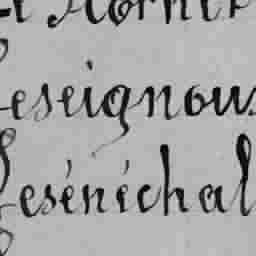 Le Mornet
Leseignou
Lesénéchal